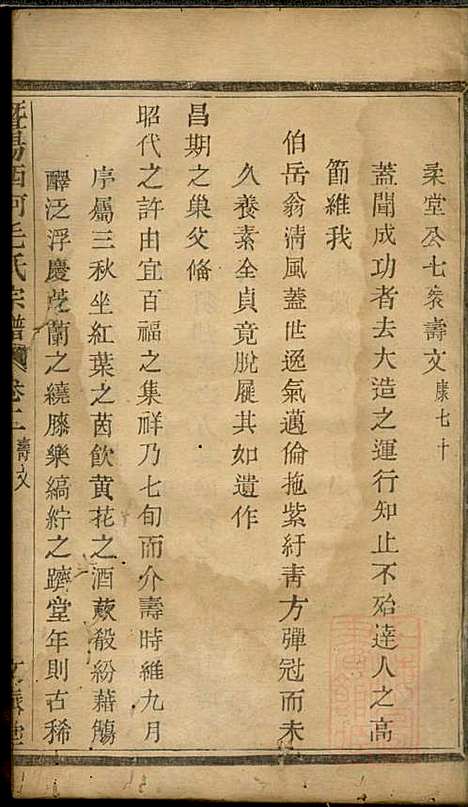 柔堂公七袠壽文康七十
蓋聞成功者去大造之運行知止不殆達人之高
節維我
伯岳翁清風蓋世逸氣邁倫拖紫紆青方彈冠而未
久養素全貞竟脫屣其如遺作
昌期之巢父脩
昭代之許由宜百福之集祥乃七旬而介壽時維九月
序屬三秋坐紅葉之茵飲黃花之酒蔌殽紛藉觴
醳泛浮慶芝蘭之繞膝樂縞紵之躋堂年則古稀
暨陽西河毛氏宗譜 卷二 壽文